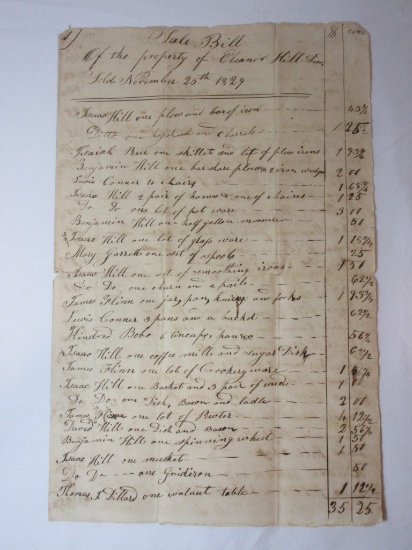 Sale Bill $ cents
Of the property of Eleanor Hill
Sold November 25th 1829
Isaac Hill one plow and bar of iron 43 3/4
Ditto one hogshead and 1 25
Isaiah one skillet and lot of plow irons 1 93 3/4
Benjamin Hill one bar share plow & iron 2 00
Lewis Conner 10 chairs 1 68 3/4
Isaac Hill 2 pair of hames & one of chains 1 25
Do & one lot of pot ware 3 00
Benjamin Hill one half gallon measure 50
Isaac Hill one lot of glass ware 1 18 3/4
Mary Garrett one set of spools 25
Isaac Hill one set of smoothing irons 1 50
Do Do one churn and 2 pails 62 1/2
James Flinn one jar pans knives and forks 1 93 3/4
Lewis Conner 3 pans and a bucket 62 1/2
Kindred Bobo 2 pans 56 1/4
Isaac Hill one coffee mill and Sugar Dish 62 1/2
James Flinn one lot of Crockery ware 1
Isaac Hill one Basket and 3 pair of cards 1 00
Do Do one Dish, Bason and ladle 2 00
James Flinn one lot of Pewter 4 12 1/2
David Hill one Dish and Bason 2 56 1/4
Benjamin Hill one Spinning wheel 1 50
1 50
Isaac Hill one musket
Do Do one Gridiron 50
Thomas F Dillard one walnut table 1 12 1/2
35 25